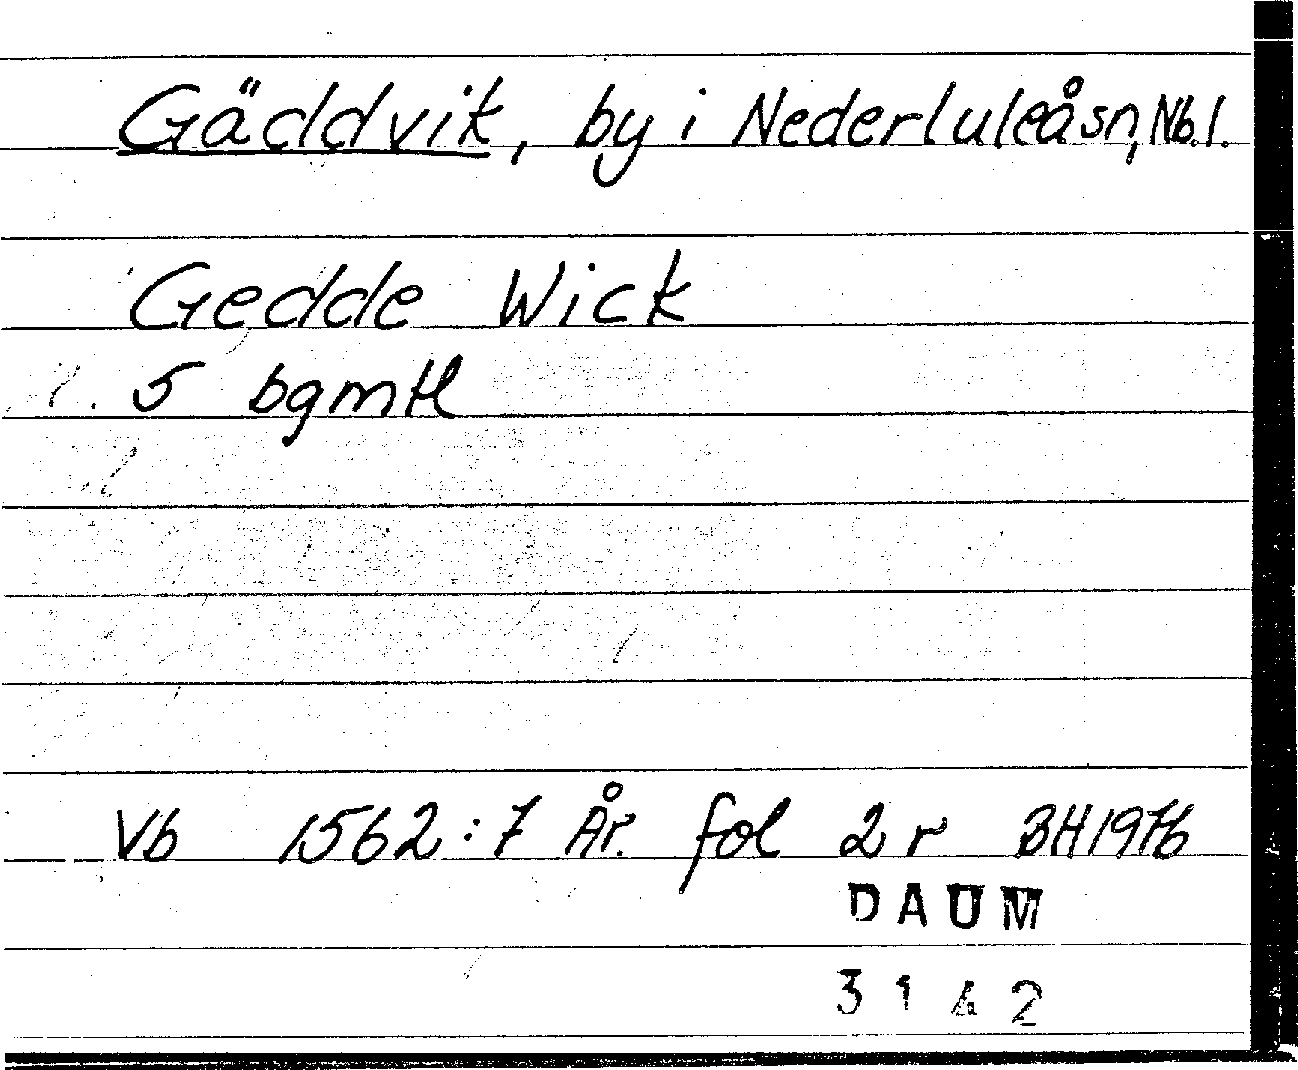 Gäddvik, by i Nederluleåsn, Nb.l.
Gedde Wick
5 bgmtl
Vb 1562:7 År. fol 2 r BH1976
DAUM
3142